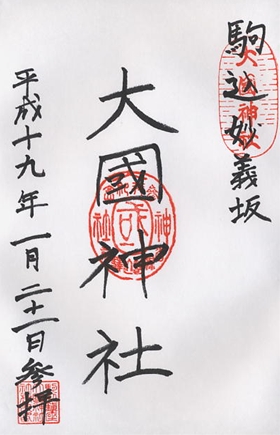 駒込妙義坂
大國神社
平成十九年一月二十一日参拝